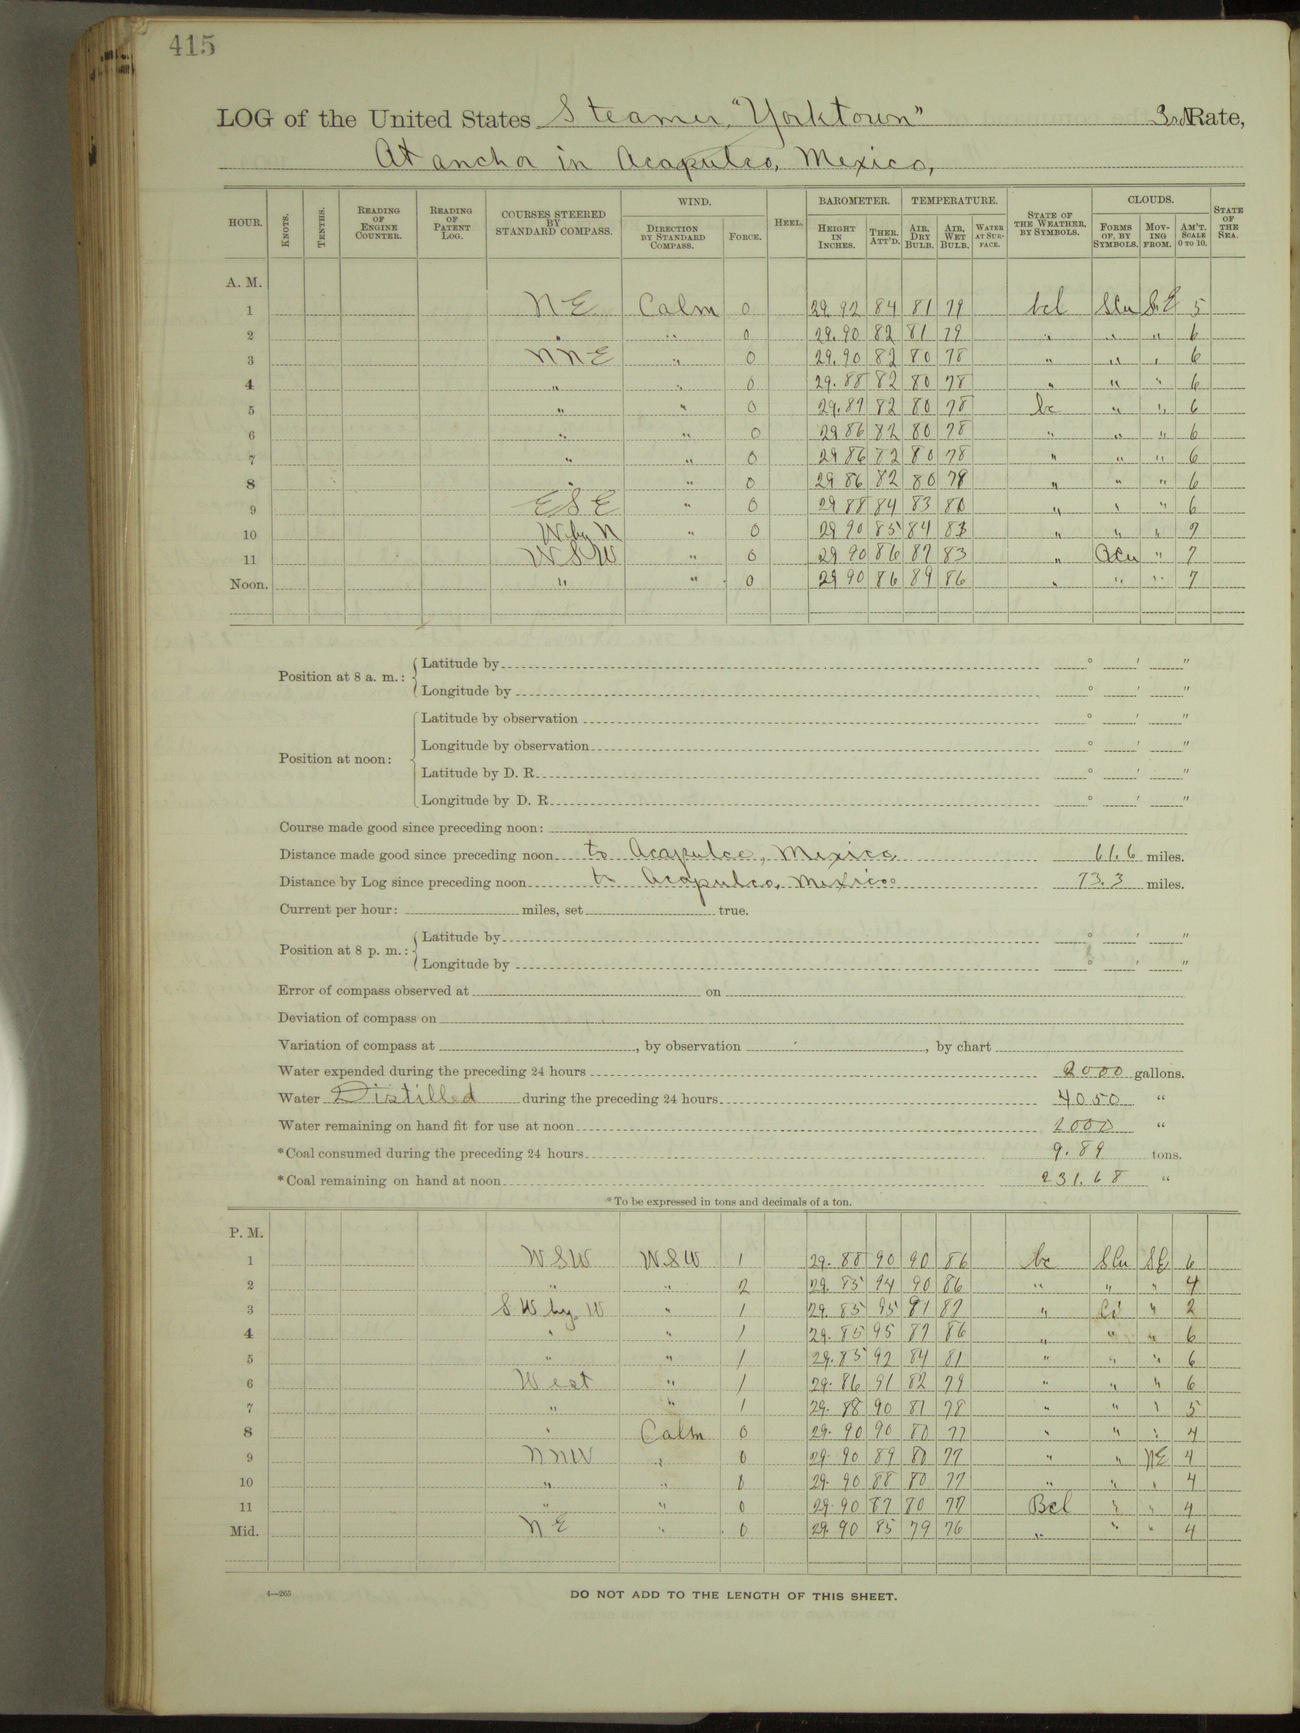 415
LOG of the United States Steamer "Yorktown" 3rd Rate,
At anchor in Acapulco, Mexico,
HOUR. KNOTS. TENTHS. READING OF ENGINE COUNTER. READING OF PATENT LOG. COURSES STEERED BY STANDARD COMPASS. WIND. DIRECTION BY STANDARD COMPASS. FORCE. HEEL. BAROMETER. HEIGHT IN INCHES. THER. ATT'D. TEMPERATURE. AIR, DRY BULB. AIR, WET BULB. WATER AT SURFACE. STATE OF THE WEATHER, BY SYMBOLS. CLOUDS. FORMS OF, BY SYMBOLS. MOVING FROM. AM'T. SCALE 0 TO 10. STATE OF THE SEA.
A. M.
1 NE Calm 0 29.92 84 81 79 bcl SCu S.E 5
2 " " 0 29.90 82 81 79 " " " 6
3 NNE " 0 29.90 82 80 78 " " " 6
4 " " 0 29.88 82 80 78 " " " 6
5 " " 0 29.87 82 80 78 bc " " 6
6 " " 0 29 86 82 80 78 " " " 6
7 " " 0 29 86 82 80 78 " " " 6
8 " " 0 29 86 82 80 78 " " " 6
9 ESE " 0 29 88 84 83 80 " " " 6
10 W by N " 0 29 90 85 84 83 " " " 7
11 WSW " 0 29 90 86 87 83 " ACu " 7
Noon. " " 0 29 90 86 89 86 " " " 7
Position at 8 a. m.: Latitude by ° ' "
Longitude by ° ' "
Position at noon: Latitude by observation ° ' "
Longitude by observation ° ' "
Latitude by D. R. ° ' "
Longitude by D. R. ° ' "
Course made good since preceding noon:
Distance made good since preceding noon to Acapulco, Mexico 61.6 miles.
Distance by Log since preceding noon to Acapulco, Mexico 73.3 miles.
Current per hour: miles, set true.
Position at 8 p. m.: Latitude by ° ' "
Longitude by ° ' "
Error of compass observed at on
Deviation of compass on
Variation of compass at , by observation , by chart
Water expended during the preceding 24 hours 2000 gallons.
Water Distilled during the preceding 24 hours 4050 "
Water remaining on hand fit for use at noon 2000 "
*Coal consumed during the preceding 24 hours 9.89 tons.
*Coal remaining on hand at noon 231.68 "
*To be expressed in tons and decimals of a ton.
P. M.
1 WSW WSW 1 29. 88 90 90 86 bc SCu SE 6
2 " " 2 29. 85 94 90 86 " " " 4
3 S.W by. W " 1 29. 85 95 91 87 " Ci " 2
4 " " 1 29. 85 95 87 86 " " " 6
5 " " 1 29. 85 92 84 81 " " " 6
6 West " 1 29. 86 91 82 79 " " " 6
7 " " 1 29. 88 90 81 78 " " " 5
8 " Calm 0 29. 90 90 80 77 " " " 4
9 NNW " 0 29. 90 89 80 77 " " NE 4
10 " " 0 29. 90 88 80 77 " " " 4
11 " " 0 29. 90 87 80 77 Bcl " " 4
Mid. NE " 0 29. 90 85 79 76 " " " 4
4—265
DO NOT ADD TO THE LENGTH OF THIS SHEET.